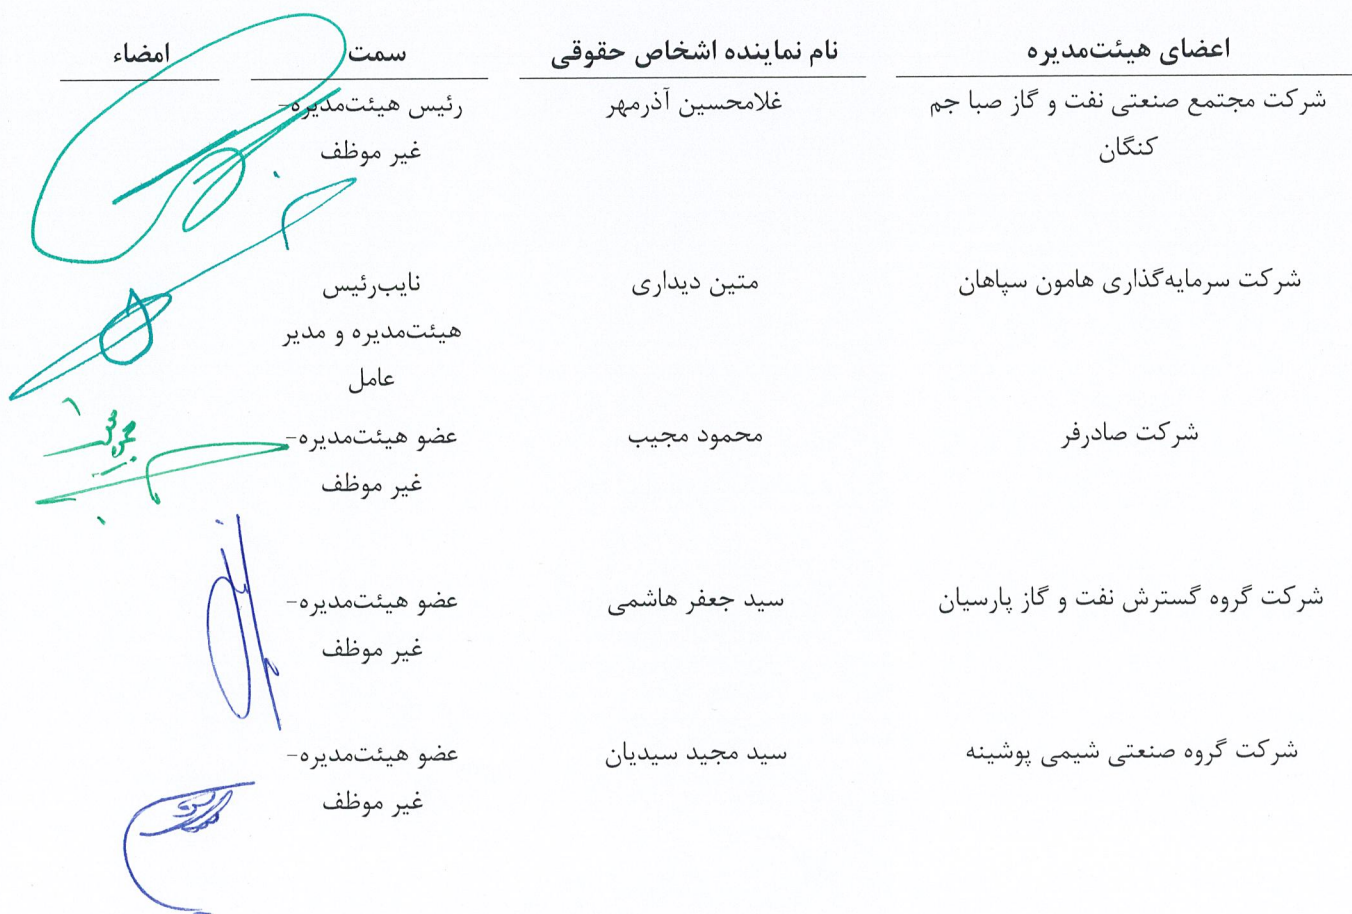 اعضای هیئت‌مدیره نام نماینده اشخاص حقوقی سمت امضاء
شرکت مجتمع صنعتی نفت و گاز صبا جم غلامحسین آذرمهر رئیس هیئت‌مدیره-
کنگان غیر موظف
شرکت سرمایه‌گذاری هامون سپاهان متین دیداری نایب‌رئیس
هیئت‌مدیره و مدیر
عامل
شرکت صادرفر محمود مجیب عضو هیئت‌مدیره-
غیر موظف
شرکت گروه گسترش نفت و گاز پارسیان سید جعفر هاشمی عضو هیئت‌مدیره-
غیر موظف
شرکت گروه صنعتی شیمی پوشینه سید مجید سیدیان عضو هیئت‌مدیره-
غیر موظف